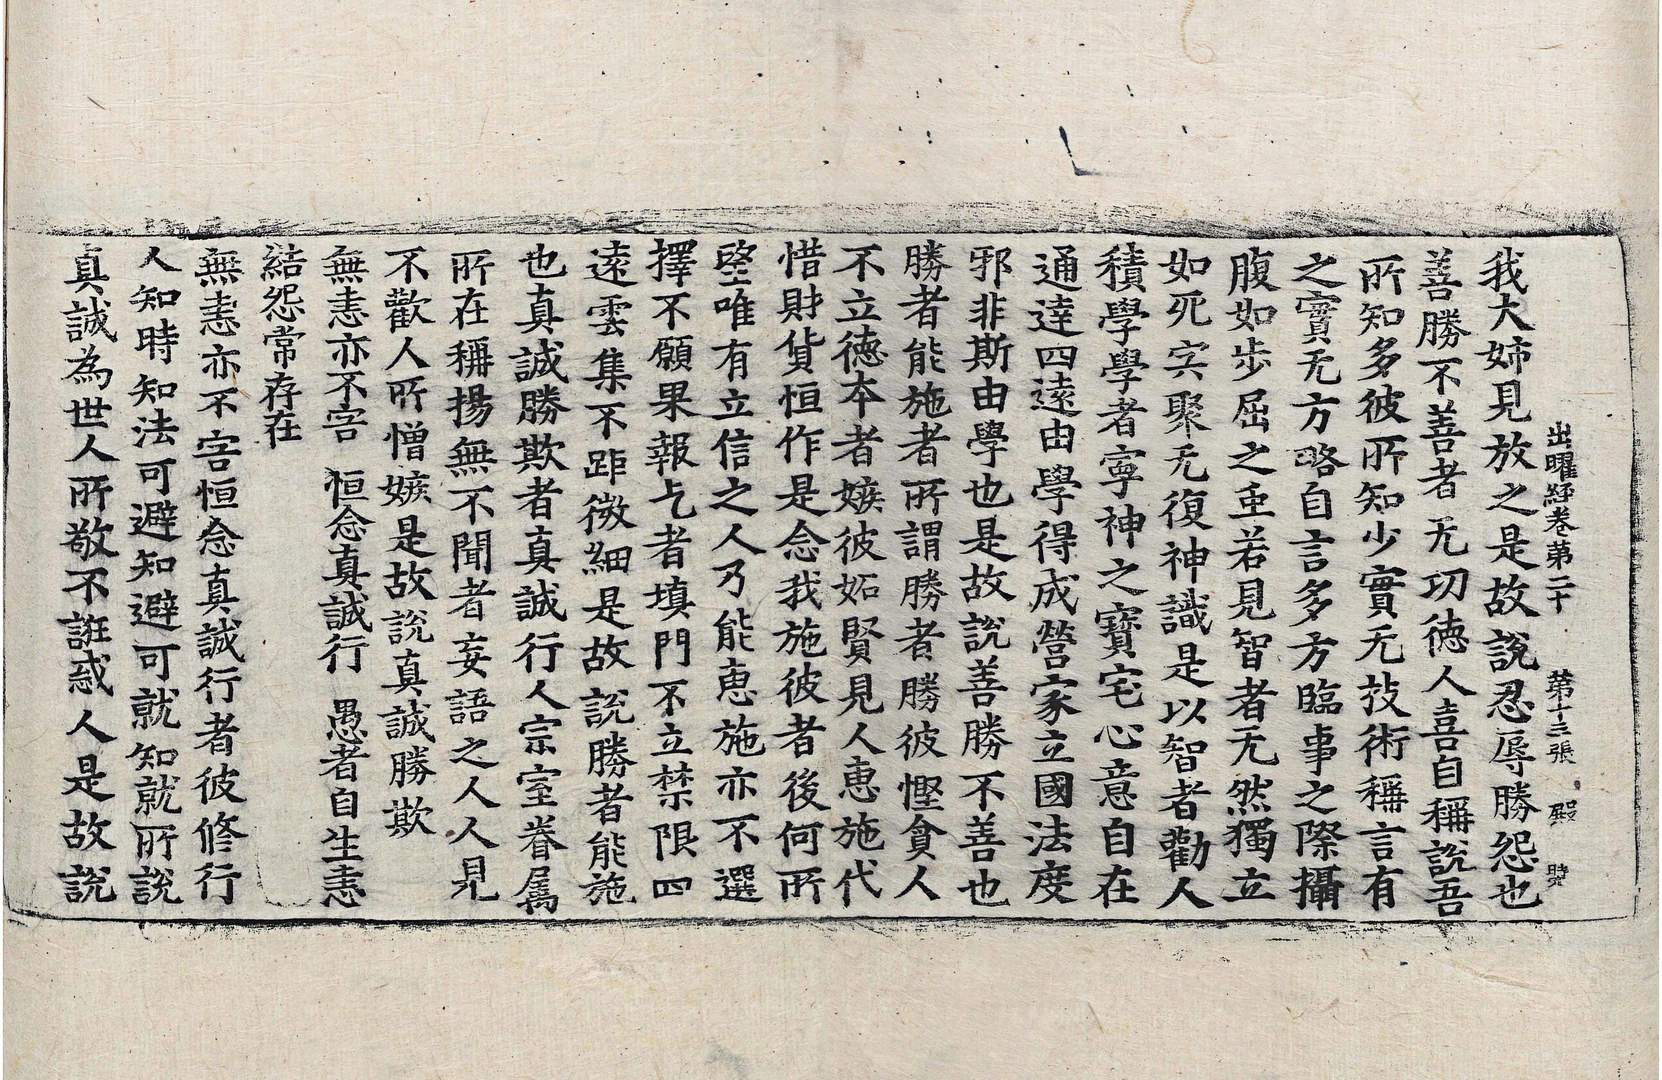 出曜經卷第二十 第十三張 殿
我大姉見放之是故說忍辱勝怨也
善勝不善者无功德人喜自稱說吾
所知多彼所知少實无技術稱言有
之實无方略自言多方臨事之際攝
腹如步屈之重若見智者无然獨立
如死灾聚无復神識是以智者勸人
積學學者寧神之寶宅心意自在
通達四遠由學得成營家立國法度
邪非斯由學也是故說善勝不善也
勝者能施者所謂勝者勝彼慳貪人
不立德本者嫉彼妬賢見人惠施代
惜財貨恒作是念我施彼者後何所
望唯有立信之人乃能惠施亦不選
擇不願果報乞者填門不立禁限四
遠雲集不距微細是故說勝者能施
也真誠勝欺者真誠行人宗室眷屬
所在稱揚無不聞者妄語之人人見
不歡人所憎嫉是故說真誠勝欺
無恚亦不害 恒念真誠行 愚者自生恚
結怨常存在
無恚亦不害恒念真誠行者彼修行
人知時知法可避知避可就知就所說
真誠為世人所敬不誑惑人是故說